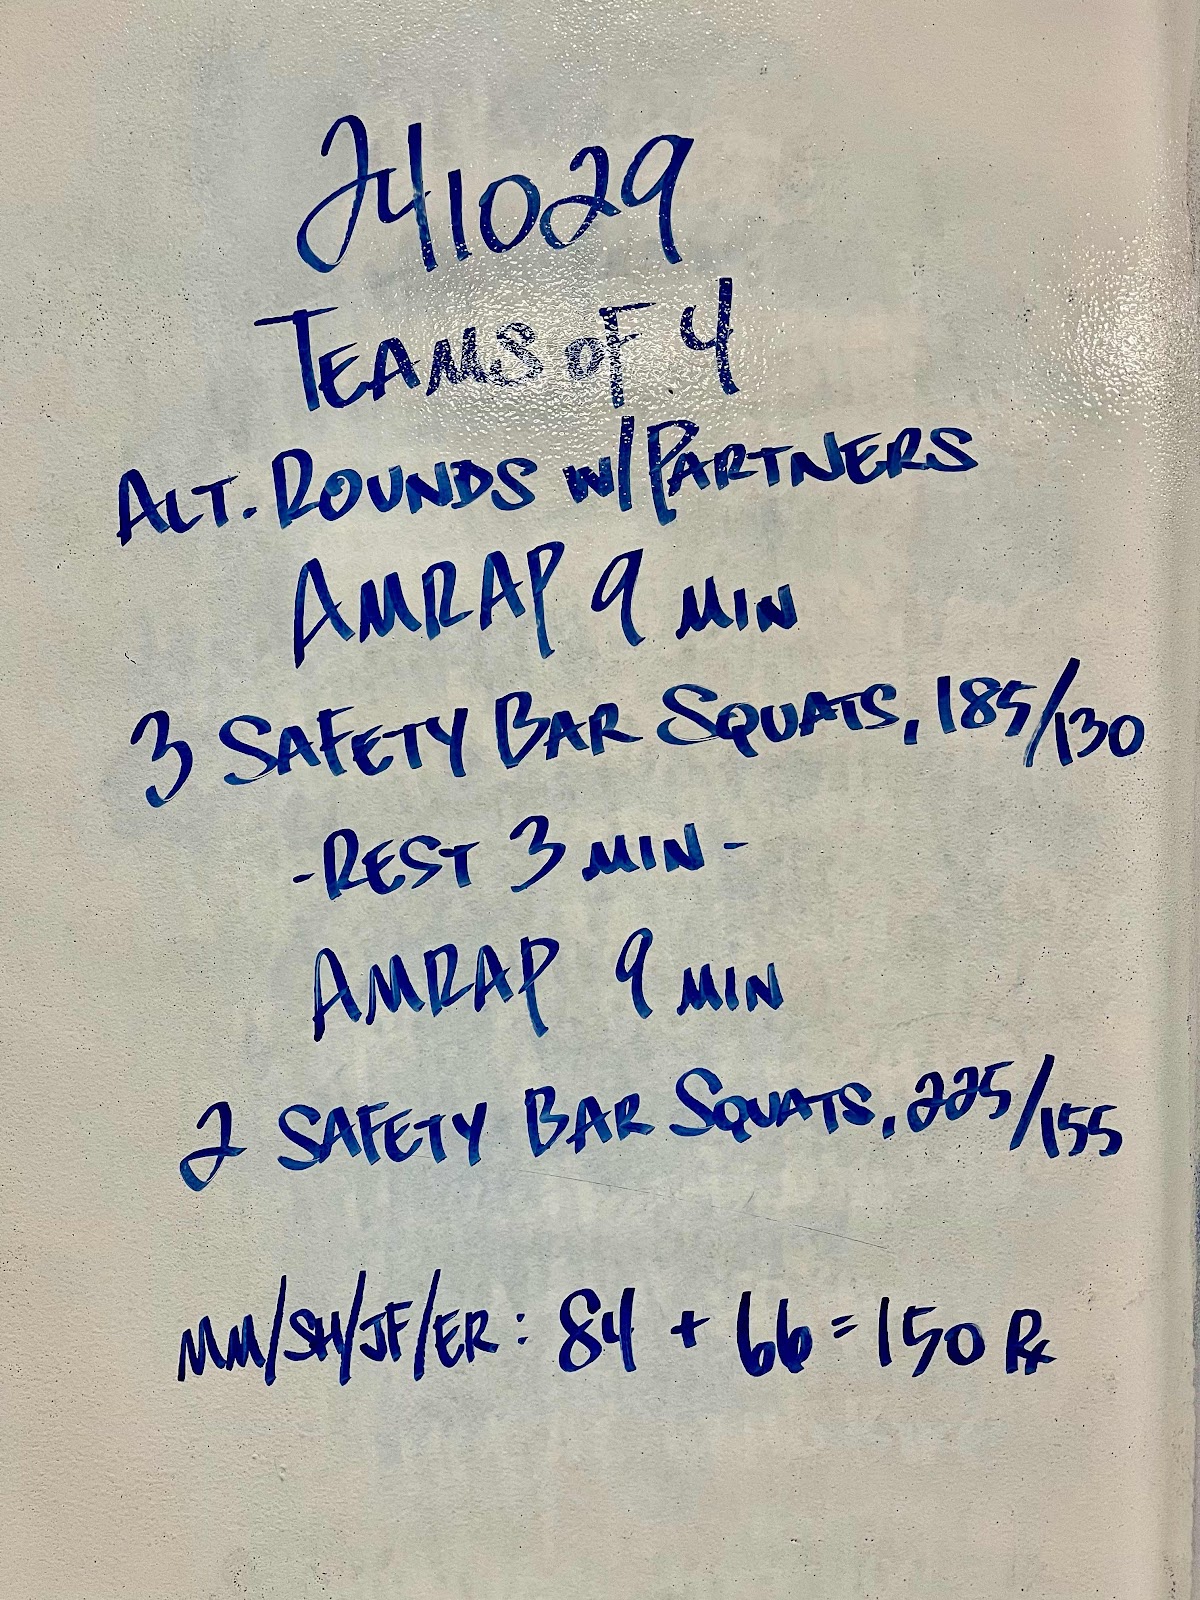 241029
TEAMS OF 4
ALT. ROUNDS W/ PARTNERS
AMRAP 9 MIN
3 SAFETY BAR SQUATS, 185/130
- REST 3 MIN -
AMRAP 9 MIN
2 SAFETY BAR SQUATS, 225/155
MM/SH/JF/ER: 84 + 66 = 150 Rx